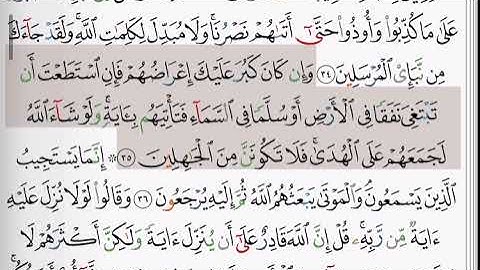 عَلَىٰ مَا كُذِّبُوا۟ وَأُوذُوا۟ حَتَّىٰٓ أَتَىٰهُمْ نَصْرُنَا ۚ وَلَا مُبَدِّلَ لِكَلِمَٰتِ ٱللَّهِ ۚ وَلَقَدْ جَآءَكَ
مِن نَّبَإِى۟ ٱلْمُرْسَلِينَ ٣٤ وَإِن كَانَ كَبُرَ عَلَيْكَ إِعْرَاضُهُمْ فَإِنِ ٱسْتَطَعْتَ أَن
تَبْتَغِىَ نَفَقًا فِى ٱلْأَرْضِ أَوْ سُلَّمًا فِى ٱلسَّمَآءِ فَتَأْتِيَهُم بِـَٔايَةٍ ۚ وَلَوْ شَآءَ ٱللَّهُ
لَجَمَعَهُمْ عَلَى ٱلْهُدَىٰ ۚ فَلَا تَكُونَنَّ مِنَ ٱلْجَٰهِلِينَ ٣٥ ۞ إِنَّمَا يَسْتَجِيبُ
ٱلَّذِينَ يَسْمَعُونَ ۘ وَٱلْمَوْتَىٰ يَبْعَثُهُمُ ٱللَّهُ ثُمَّ إِلَيْهِ يُرْجَعُونَ ٣٦ وَقَالُوا۟ لَوْلَا نُزِّلَ عَلَيْهِ
ءَايَةٌ مِّن رَّبِّهِۦ ۚ قُلْ إِنَّ ٱللَّهَ قَادِرٌ عَلَىٰٓ أَن يُنَزِّلَ ءَايَةً وَلَٰكِنَّ أَكْثَرَهُمْ لَا